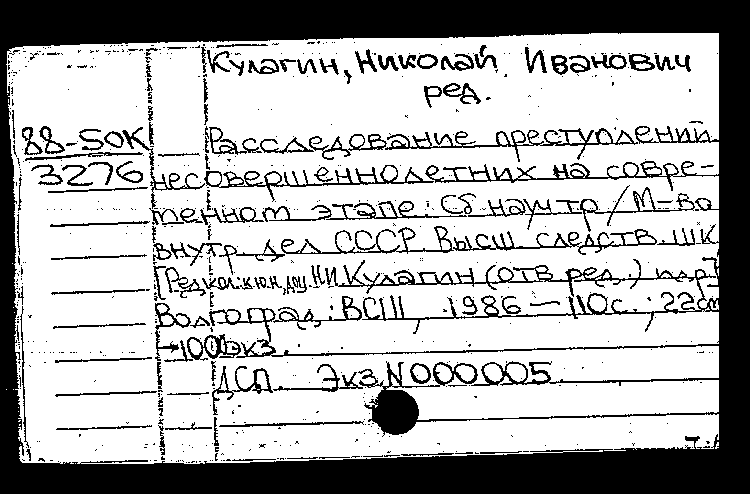 Кулагин, Николай Иванович
ред.
88-5ОК
3276
Расследование преступлений
несовершеннолетних на совре-
менном этапе: Сб науч тр / М-во
внутр дел СССР. Высш. следств. шк
[Редкол: к.ю.н, доц Н И Кулагин (отв ред.) и др]
Волгоград: ВСШ, 1986 — 110с.; 22см
100экз.
ДСП. Экз N000005